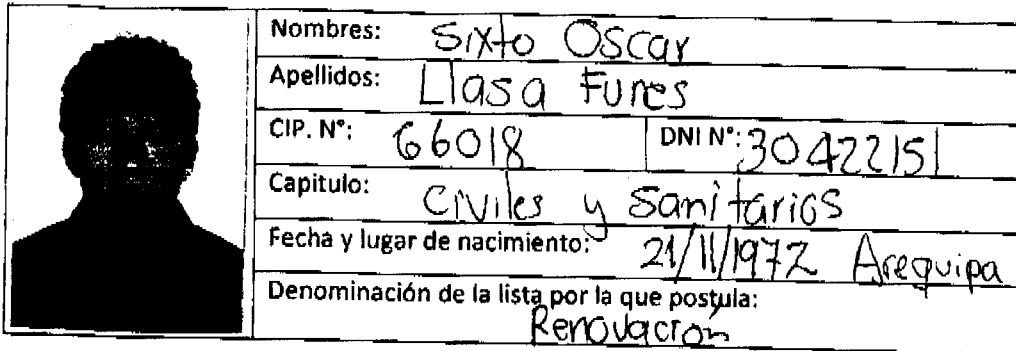 Nombres: Sixto Oscar
Apellidos: Llasa Funes
CIP. N°: 66018 DNI N°: 30422151
Capitulo: Civiles y Sanitarios
Fecha y lugar de nacimiento: 21/11/1972 Arequipa
Denominación de la lista por la que postula:
Renovación